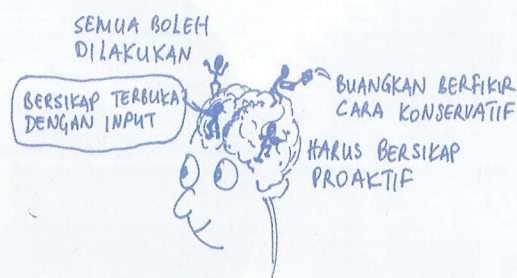 SEMUA BOLEH
DILAKUKAN
BERSIKAP TERBUKA
DENGAN INPUT
BUANGKAN BERFIKIR
CARA KONSERVATIF
HARUS BERSIKAP
PROAKTIF